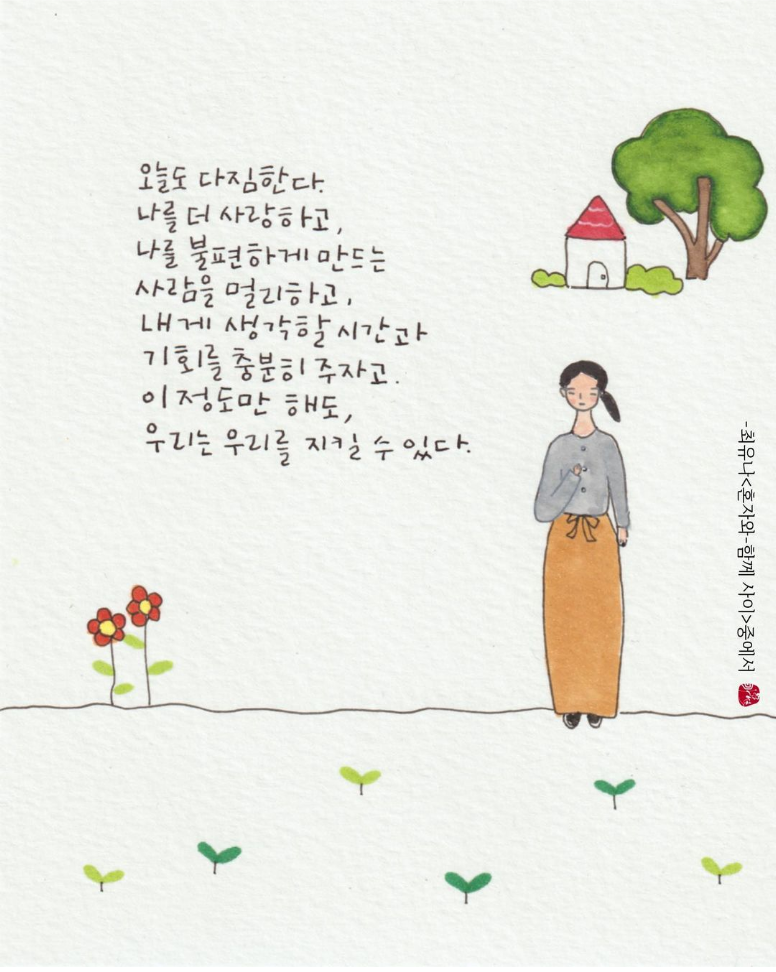 오늘도 다짐한다.
나를 더 사랑하고,
나를 불편하게 만드는
사람을 멀리하고,
내게 생각할 시간과
기회를 충분히 주자고.
이 정도만 해도,
우리는 우리를 지킬 수 있다.
-최유나<혼자와-함께 사이>중에서